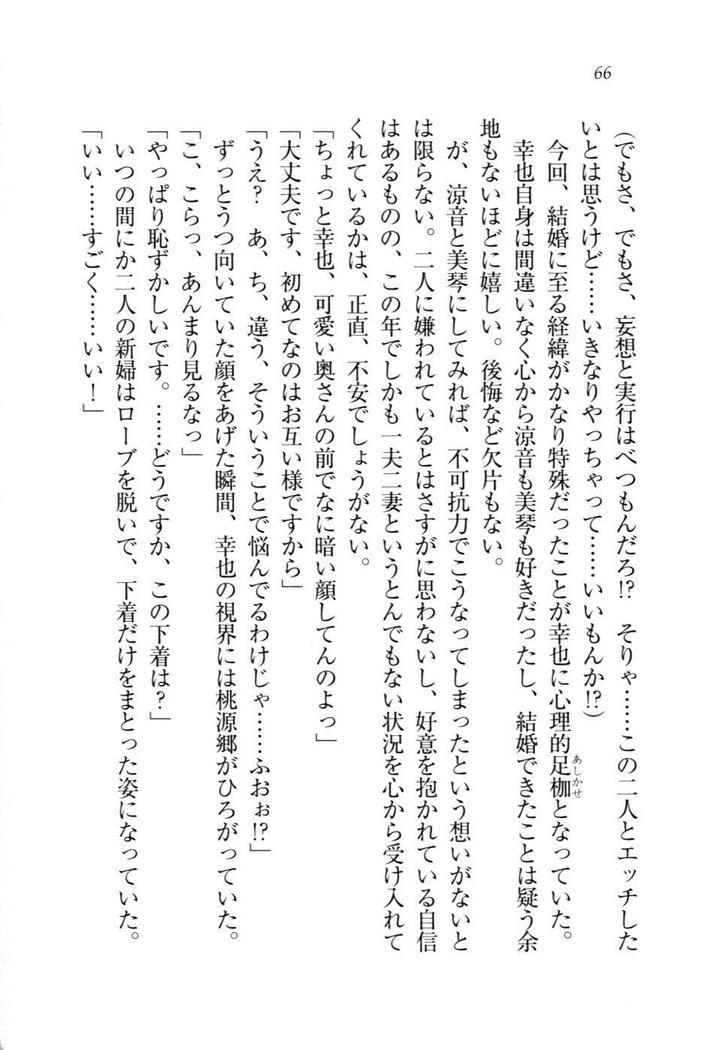 66
（でもさ、でもさ、妄想と実行はべつもんだろ!?　そりゃ……この二人とエッチした
いとは思うけど……いきなりやっちゃって……いいもんか!?）
今回、結婚に至る経緯がかなり特殊だったことが幸也に心理的足枷となっていた。
あしかせ
幸也自身は間違いなく心から涼音も美琴も好きだったし、結婚できたことは疑う余
地もないほどに嬉しい。後悔など欠片もない。
が、涼音と美琴にしてみれば、不可抗力でこうなってしまったという想いがないと
は限らない。二人に嫌われているとはさすがに思わないし、好意を抱かれている自信
はあるものの、この年でしかも一夫二妻というとんでもない状況を心から受け入れて
くれているかは、正直、不安でしょうがない。
「ちょっと幸也、可愛い奥さんの前でなに暗い顔してんのよっ」
「大丈夫です、初めてなのはお互い様ですから」
「うえ？　あ、ち、違う、そういうことで悩んでるわけじゃ……ふおぉ!?」
ずっとうつ向いていた顔をあげた瞬間、幸也の視界には桃源郷がひろがっていた。
「こ、こらっ、あんまり見るなっ」
「やっぱり恥ずかしいです。……どうですか、この下着は？」
いつの間にか二人の新婦はローブを脱いで、下着だけをまとった姿になっていた。
「いい……すごく……いい！」